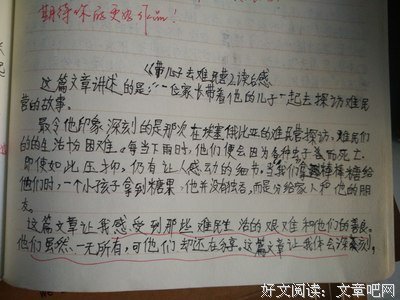 期待你底更好作品！
《带儿子去难民营》读后感
这篇文章讲述的是："一位家长带着他的儿子"一起去探访难民
营的故事。
最令他印象深刻的是那次在埃塞俄比亚的难民营探访。难民们
的的生活十分困难。每当下雨时，他们便会因为各种虫子而死亡。
即使如此压抑，仍有让人感动的细节。当我们拿棒棒糖给
他们时，一个小孩子拿到糖果，他并没有独吞，而是分给家人和他的朋
友。
这篇文章让我感受到那些难民生活的艰难和他们的善良。
他们虽然一无所有，可他们却还在分享。这篇文章让我体会深刻。
好文阅读：文章吧网